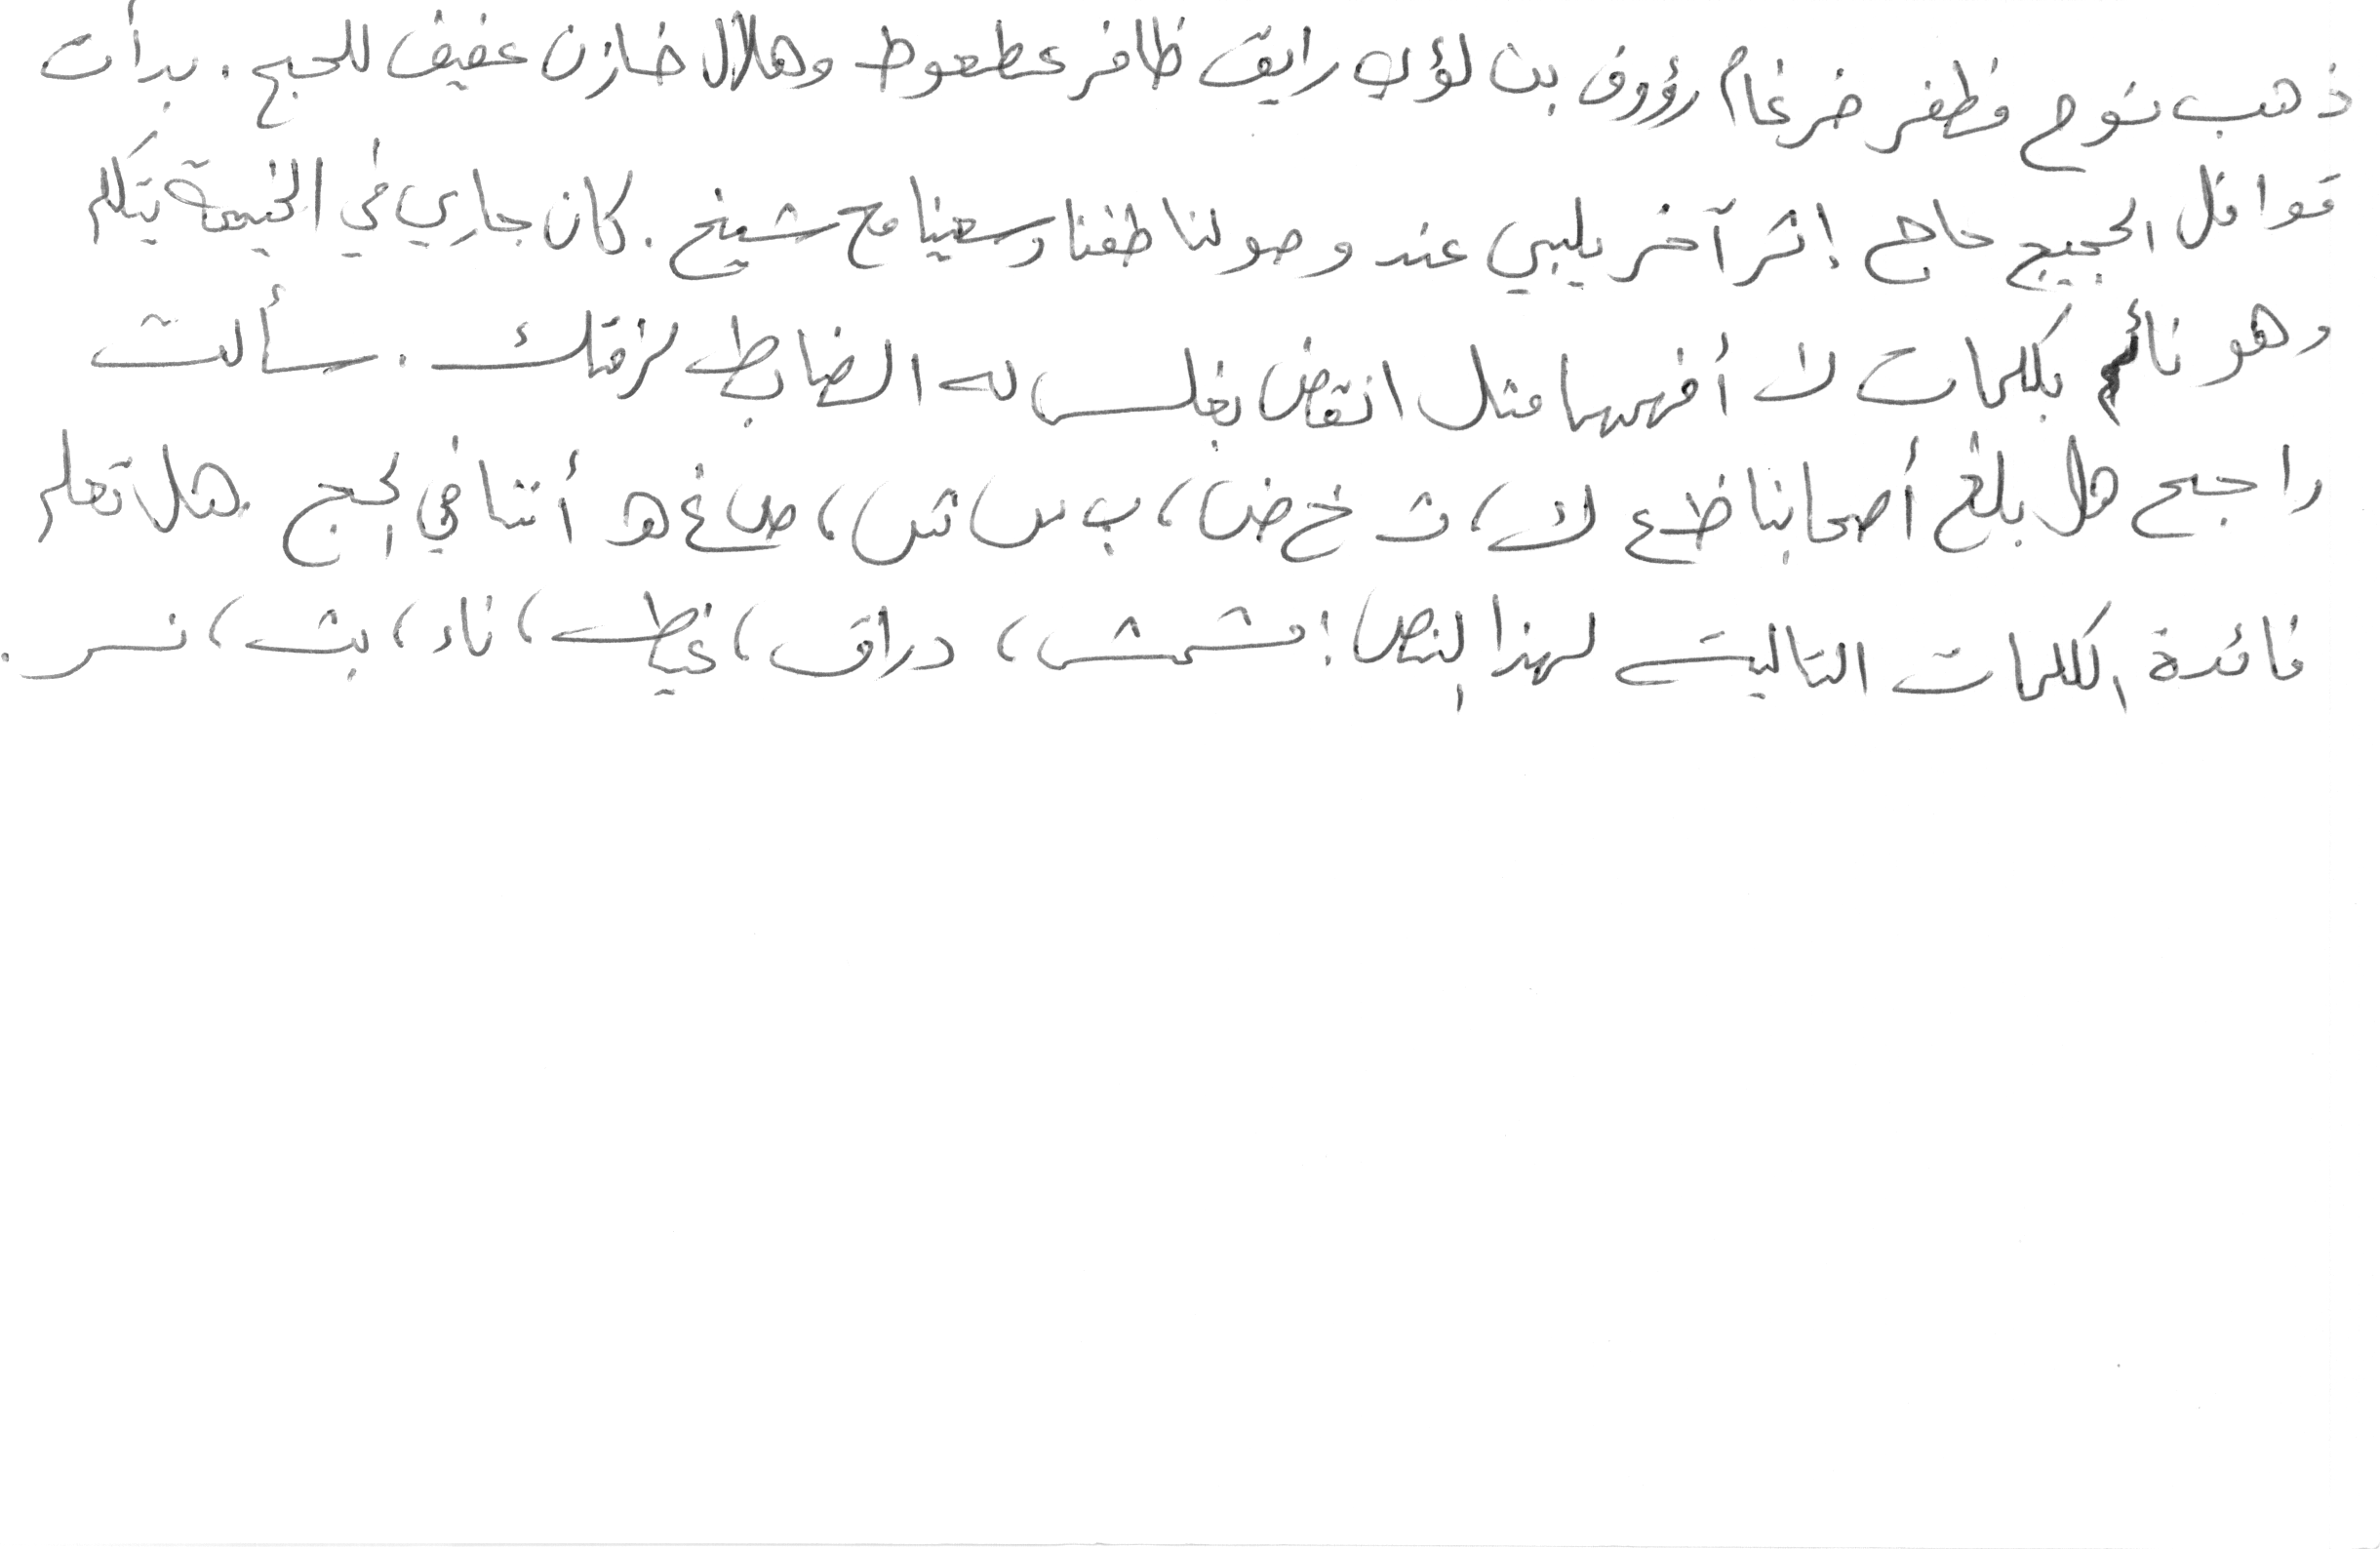 ذهب نوح مظفر ضرغام رؤوف بن لؤي رايق ظافر عطعوط وهلال خازن عفيف للحج. بدأت
قوافل الحجيج حاج إثر آخر يلبي عند وصولنا طفنا وسعينا مع شيخ. كان جاري في الخيمة يتكلم
وهو نائم بكلمات لا أفهمها مثل انقض بغلس له الضابط لزقتك. سألت
راجح هل بلغ أصحابنا ظ ع ك، ث خ ض، ب س ش، ص غ ه أننا في الحج. هل تعلم
فائدة الكلمات التالية لهذا النص: مشمش، دراق، غيظ، ناء، بث، نسر.